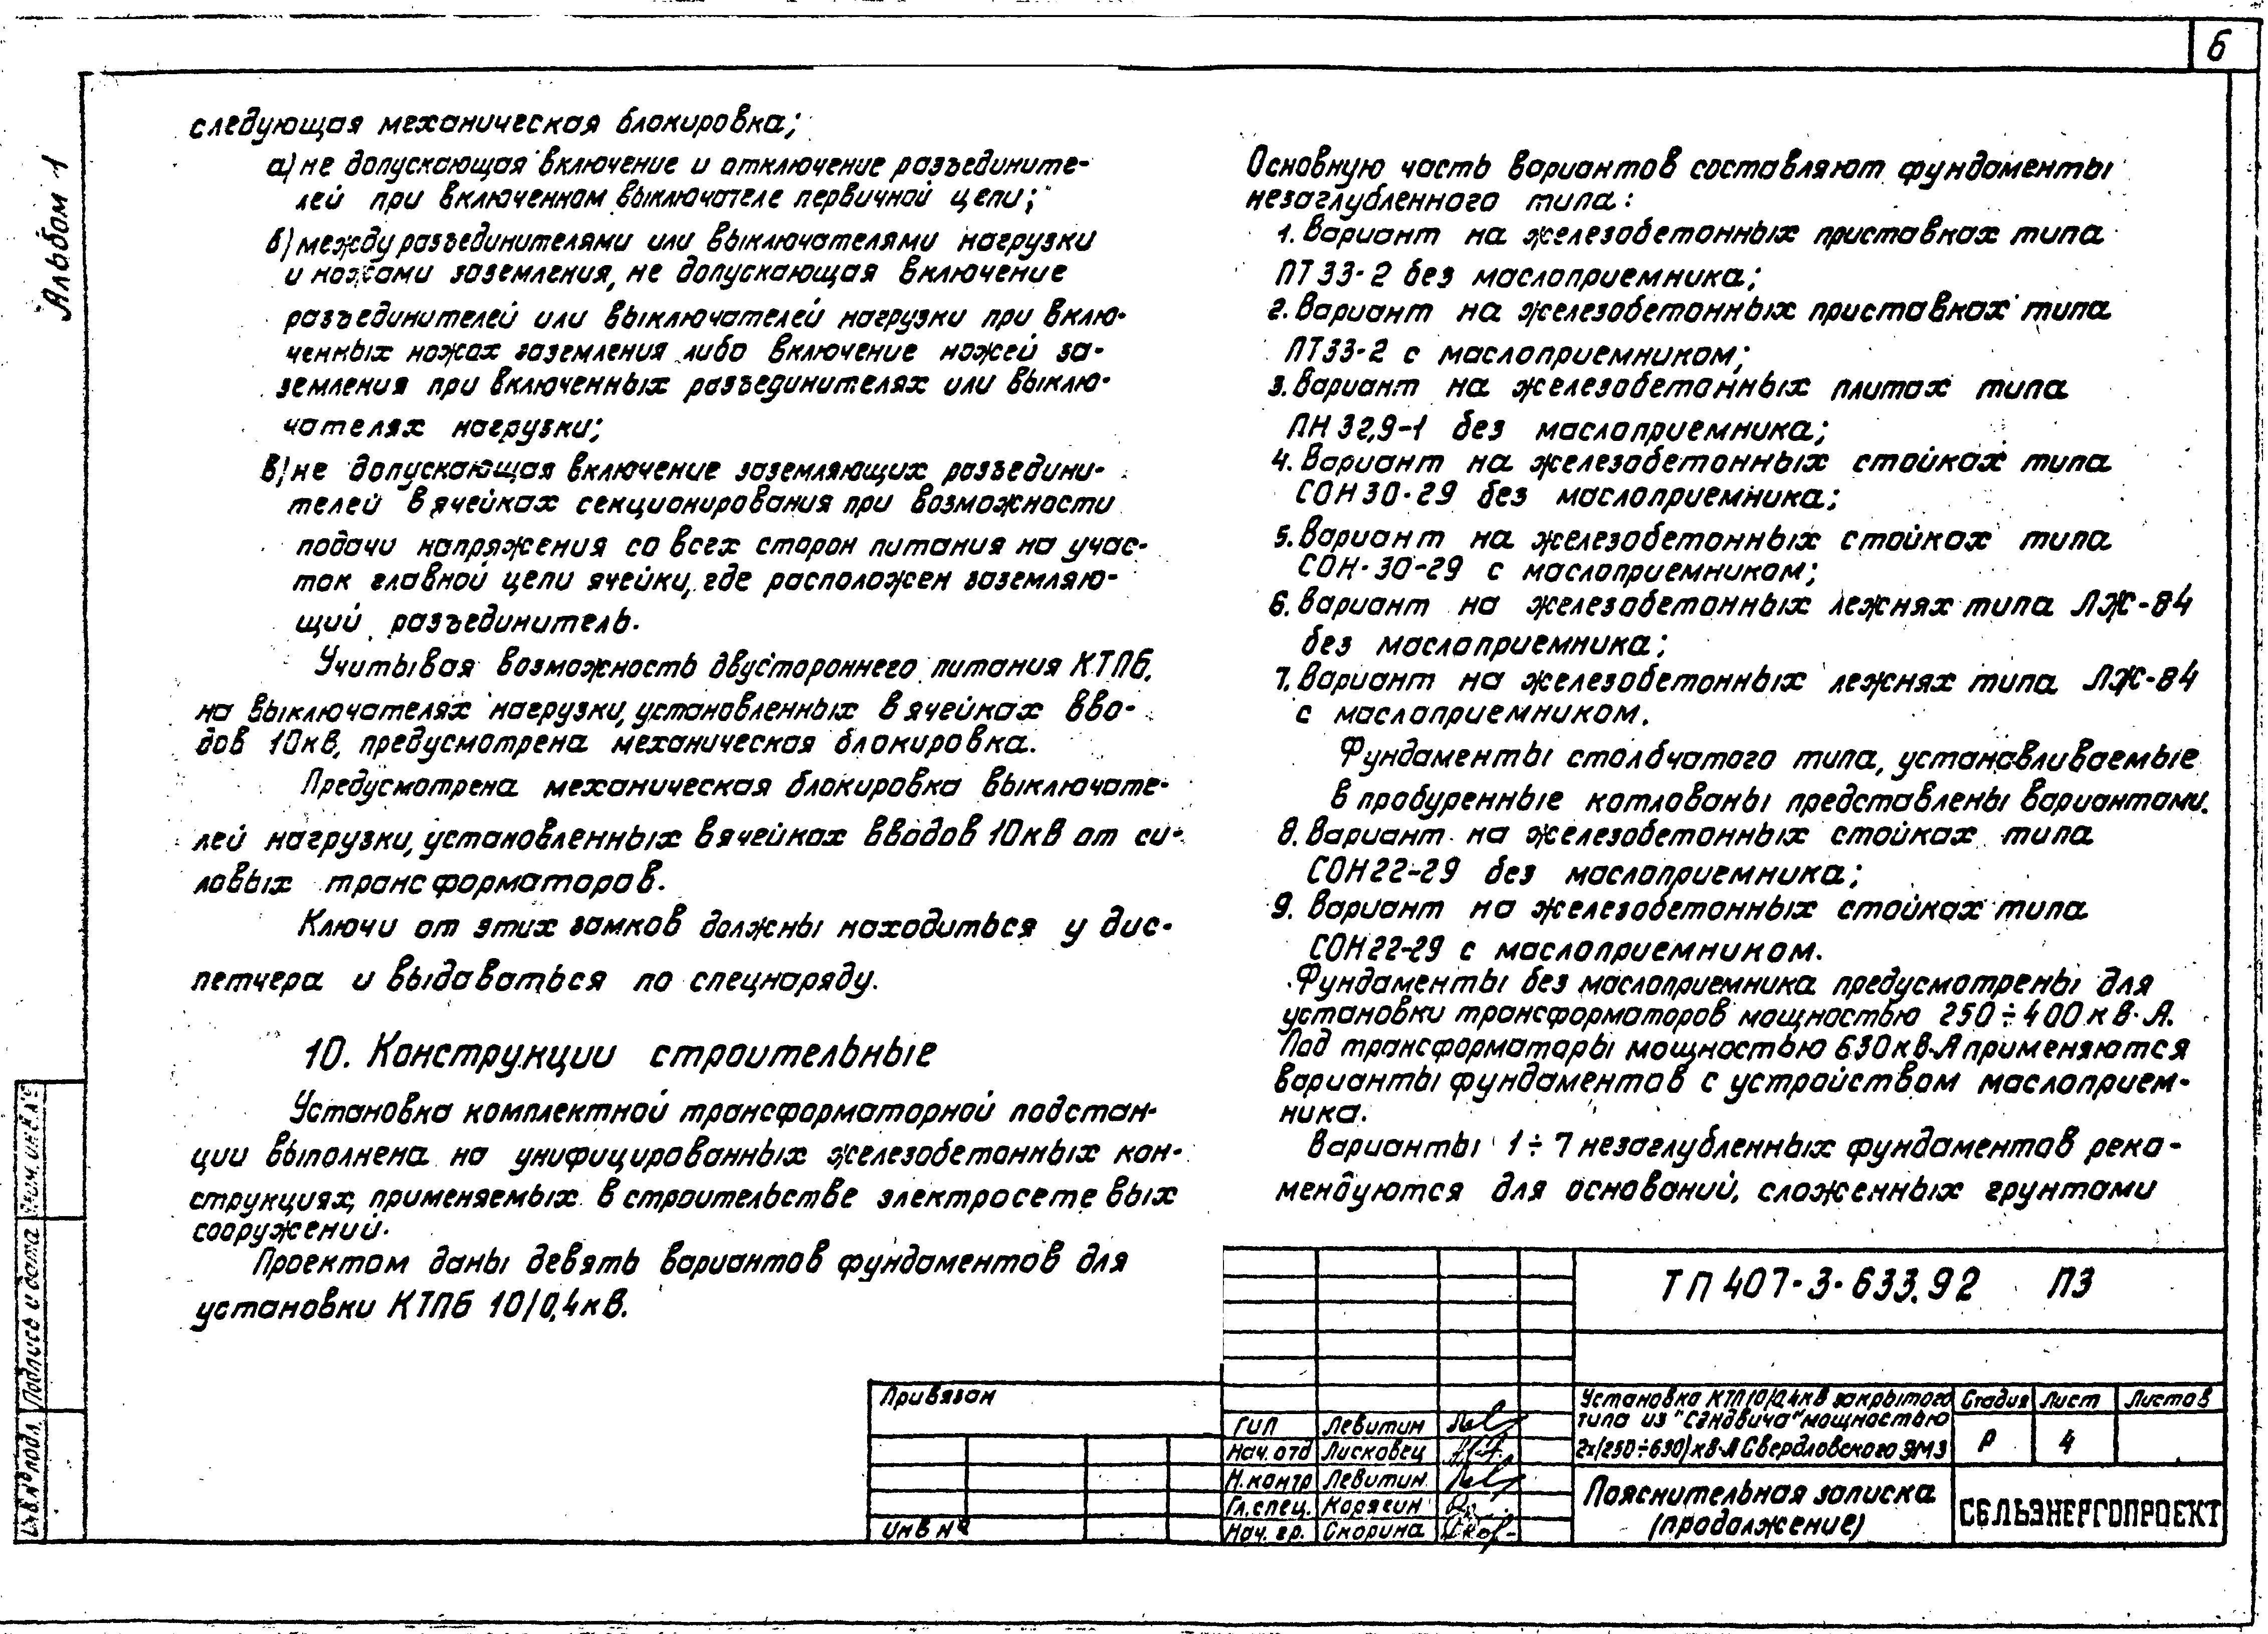 6
Альбом 1
следующая механическая блокировка;
а) не допускающая включение и отключение разъедините-
лей при включенном выключателе первичной цепи;
б) между разъединителями или выключателями нагрузки
и ножами заземления, не допускающая включение
разъединителей или выключателей нагрузки при вклю-
ченных ножах заземления либо включение ножей за-
земления при включенных разъединителях или выклю-
чателях нагрузки;
в) не допускающая включение заземляющих разъедини-
телей в ячейках секционирования при возможности
подачи напряжения со всех сторон питания на учас-
ток главной цепи ячейки, где расположен заземляю-
щий разъединитель.
Учитывая возможность двустороннего питания КТПБ,
на выключателях нагрузки, установленных в ячейках вво-
дов 10кВ, предусмотрена механическая блокировка.
Предусмотрена механическая блокировка выключате-
лей нагрузки, установленных в ячейках вводов 10кВ от си-
ловых трансформаторов.
Ключи от этих замков должны находиться у дис-
петчера и выдаваться по спецнаряду.
10. Конструкции строительные
Установка комплектной трансформаторной подстан-
ции выполнена на унифицированных железобетонных кон-
струкциях, применяемых в строительстве электросетевых
сооружений.
Проектом даны девять вариантов фундаментов для
установки КТПБ 10/0,4кВ.
Основную часть вариантов составляют фундаменты
незаглубленного типа:
1. Вариант на железобетонных приставках типа
ПТ33-2 без маслоприемника;
2. Вариант на железобетонных приставках типа
ПТ33-2 с маслоприемником;
3. Вариант на железобетонных плитах типа
ПН 32,9-1 без маслоприемника;
4. Вариант на железобетонных стойках типа
СОН30-29 без маслоприемника;
5. Вариант на железобетонных стойках типа
СОН-30-29 с маслоприемником;
6. Вариант на железобетонных лежнях типа ЛЖ-84
без маслоприемника;
7. Вариант на железобетонных лежнях типа ЛЖ-84
с маслоприемником.
Фундаменты столбчатого типа, устанавливаемые
в пробуренные котлованы представлены вариантами.
8. Вариант на железобетонных стойках типа
СОН22-29 без маслоприемника;
9. Вариант на железобетонных стойках типа
СОН22-29 с маслоприемником.
Фундаменты без маслоприемника предусмотрены для
установки трансформаторов мощностью 250÷400 кВ·А.
Под трансформаторы мощностью 630кВ·А применяются
варианты фундаментов с устройством маслоприем-
ника.
Варианты 1÷7 незаглубленных фундаментов реко-
мендуются для оснований, сложенных грунтами
ТП 407-3-633.92 ПЗ
Привязан
Инв №
ГИП Левитин
Нач. отд Лисковец
Н.контр Левитин
Гл.спец. Корягин
Нач. гр. Скорина
Установка КТП10/0,4кВ закрытого
типа из "сэндвича" мощностью
2х(250÷630)кВ·А Свердловского ЭМЗ
Стадия Лист Листов
Р 4
Пояснительная записка
(продолжение)
СЕЛЬЭНЕРГОПРОЕКТ
Инв.№ подл. Подпись и дата Взам. инв.№